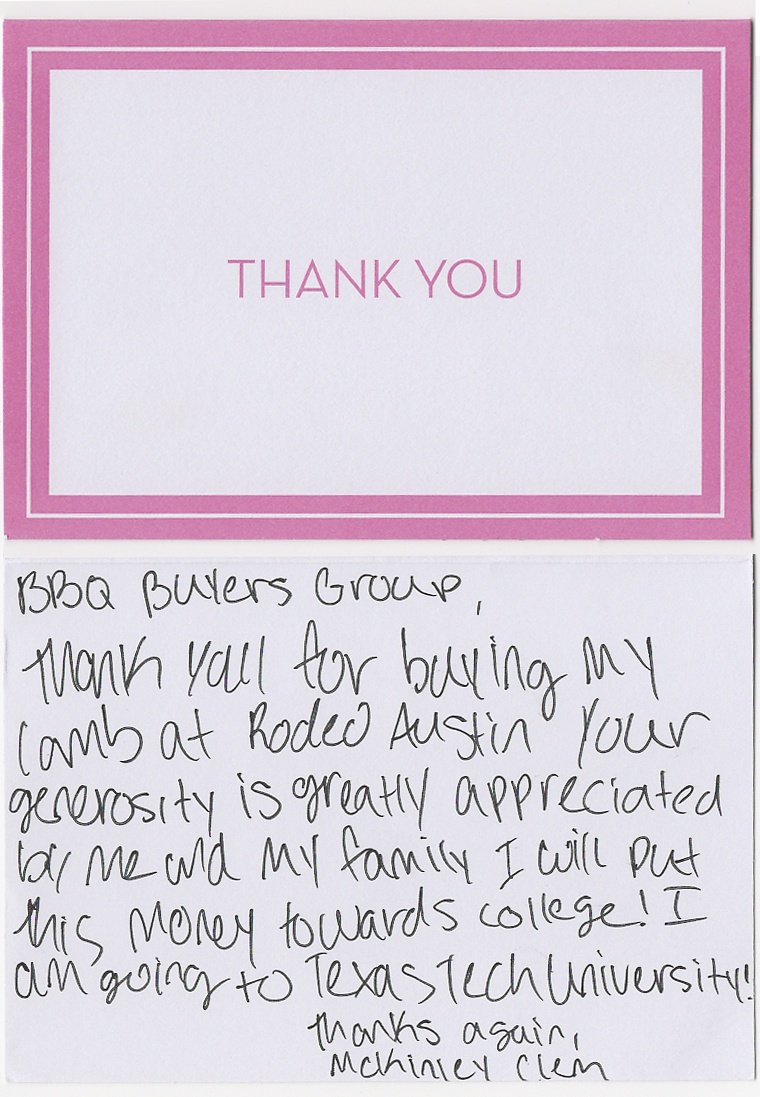 THANK YOU
BBQ Buyers Group,
Thank yall for buying my
lamb at Rodeo Austin Your
generosity is greatly appreciated
by me and my family I will put
this money towards college! I
am going to Texas Tech University!
Thanks again,
McKinley Clem